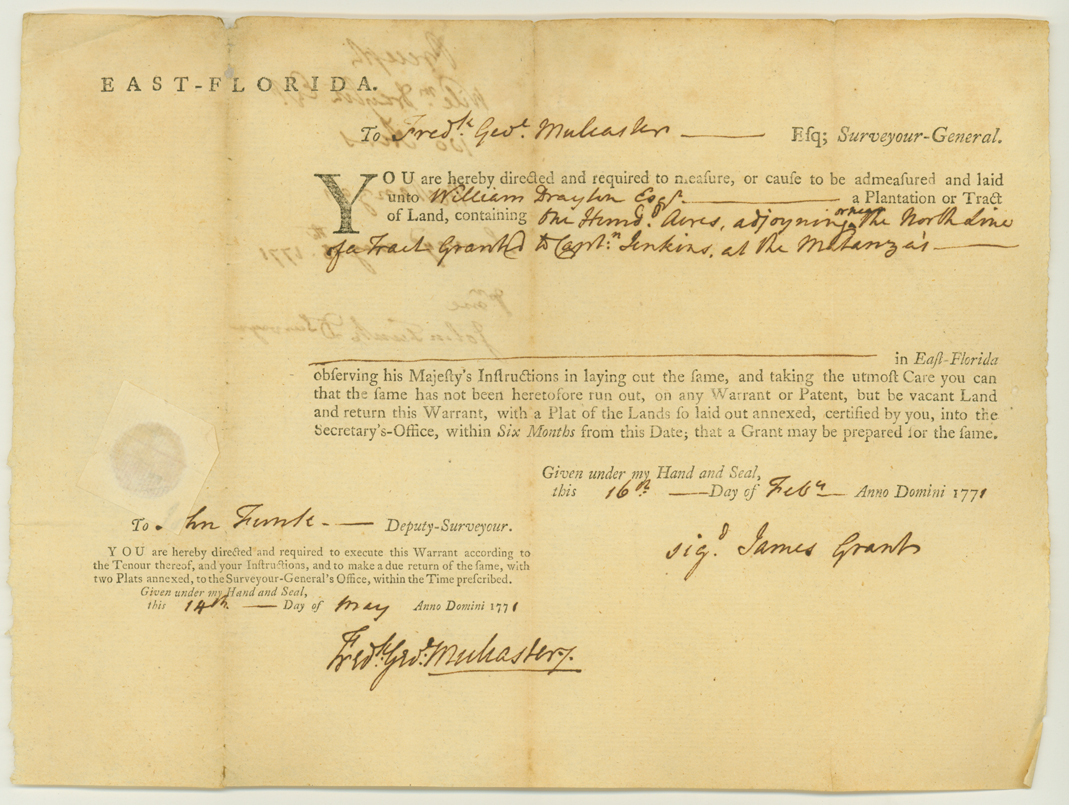 EAST-FLORIDA.
To Fredk. Geoe. Mulcaster —— Eſq; Surveyour-General.
YOU are hereby directed and required to meaſure, or cauſe to be admeaſured and laid
unto William Drayton Esqr. —— a Plantation or Tract
of Land, containing One Hund.d Acres, adjoyning the North Line
of a Tract Granted to Captn. Jenkins, at the Matanza's ——
—— in Eaſt-Florida
obſerving his Majeſty's Inſtructions in laying out the ſame, and taking the utmoſt Care you can
that the ſame has not been heretofore run out, on any Warrant or Patent, but be vacant Land
and return this Warrant, with a Plat of the Lands ſo laid out annexed, certified by you, into the
Secretary's-Office, within Six Months from this Date; that a Grant may be prepared for the ſame.
Given under my Hand and Seal,
this 16th —— Day of Feby — Anno Domini 1771
sigd. James Grant
To John Funk —— Deputy-Surveyour.
YOU are hereby directed and required to execute this Warrant according to
the Tenour thereof, and your Inſtructions, and to make a due return of the ſame, with
two Plats annexed, to the Surveyour-General's Office, within the Time preſcribed.
Given under my Hand and Seal,
this 14th —— Day of May Anno Domini 1771
Fredk. Geoe. Mulcaster